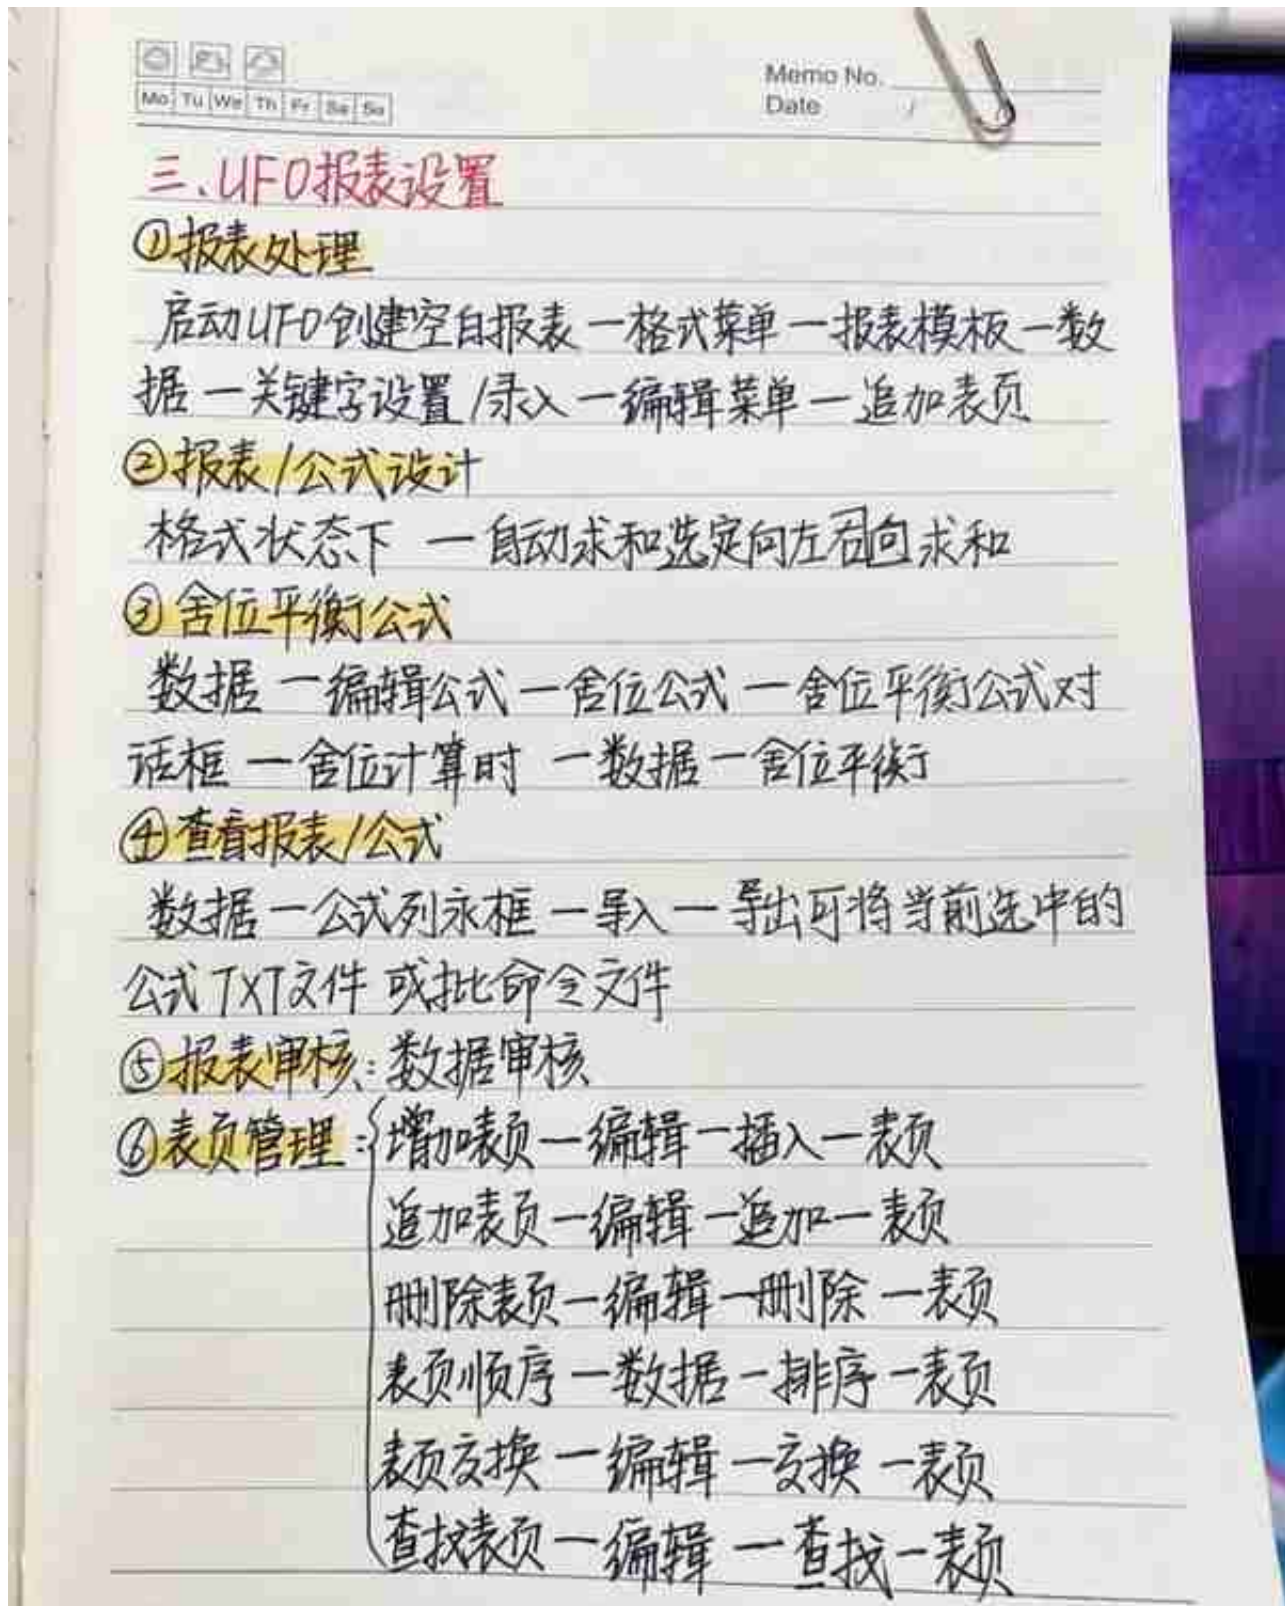 Memo No.
Mo Tu We Th Fr Sa Su
Date / /
三、UFO报表设置
①报表处理
启动UFO创建空白报表一格式菜单一报表模板一数
据一关键字设置/录入一编辑菜单一追加表页
②报表/公式设计
格式状态下 一自动求和选定向左向求和
③舍位平衡公式
数据一编辑公式一舍位公式一舍位平衡公式对
话框一舍位计算时 一数据一舍位平衡
④查看报表/公式
数据一公式列永框一导入一导出可将当前选中的
公式TXT文件 或批命令文件
⑤报表审核:数据审核
⑥表页管理:增加表页一编辑一插入一表页
追加表页一编辑一追加一表页
删除表页一编辑一删除一表页
表页顺序一数据一排序一表页
表页交换一编辑一交换一表页
查找表页一编辑一查找一表页